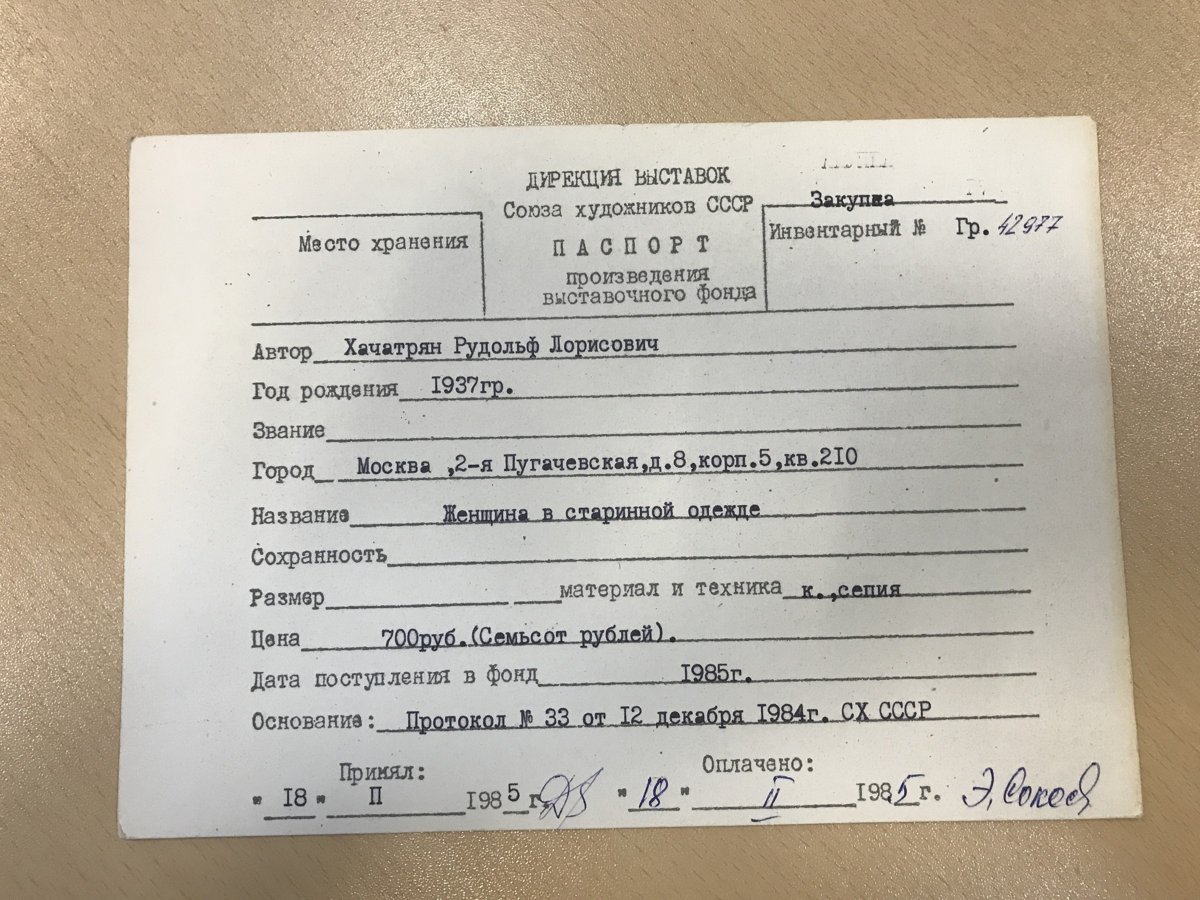 ДИРЕКЦИЯ ВЫСТАВОК
Союза художников СССР
Закупка
Место хранения
ПАСПОРТ
Инвентарный № Гр. 42977
произведения
выставочного фонда
Автор Хачатрян Рудольф Лорисович
Год рождения 1937гр.
Звание
Город Москва ,2-я Пугачевская,д.8,корп.5,кв.210
Название Женщина в старинной одежде
Сохранность
Размер материал и техника к.,сепия
Цена 700руб.(Семьсот рублей).
Дата поступления в фонд 1985г.
Основание: Протокол № 33 от 12 декабря 1984г. СХ СССР
Принял: Оплачено:
"18" П 1985г. "18" II 1985г.